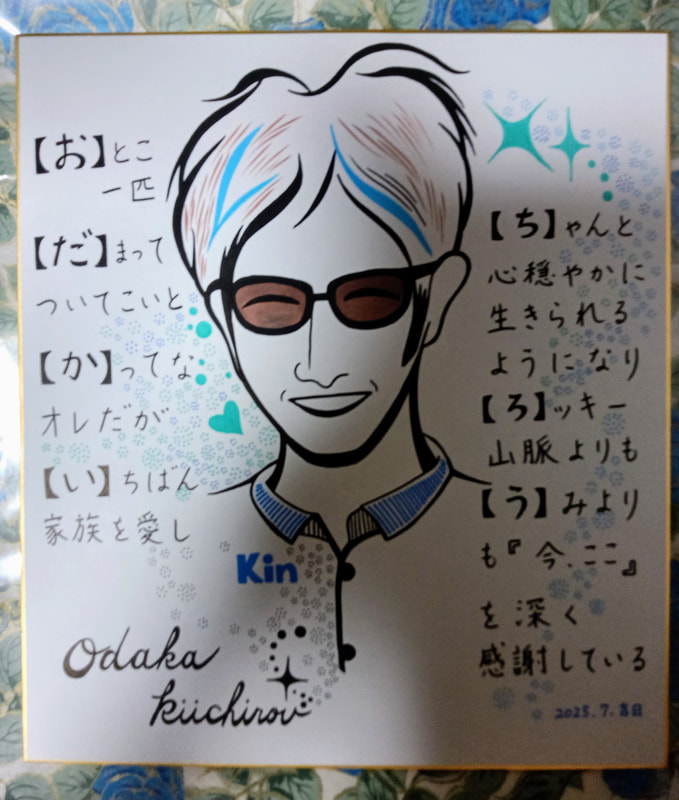 【お】とこ
一匹
【だ】まって
ついてこいと
【か】ってな
オレだが
【い】ちばん
家族を愛し
【ち】ゃんと
心穏やかに
生きられる
ようになり
【ろ】ッキー
山脈よりも
【う】みより
も『今、ここ』
を深く
感謝している
Kin
Odaka
Kiichirou
2025.7.吉日